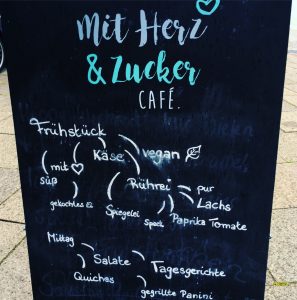 Mit Herz
& Zucker
CAFÉ.
Frühstück
Käse vegan
mit
süß
Rührei pur
Lachs
gekochtes Ei Spiegelei Speck Paprika Tomate
Mittag
Salate Tagesgerichte
Quiches
gegrillte Panini